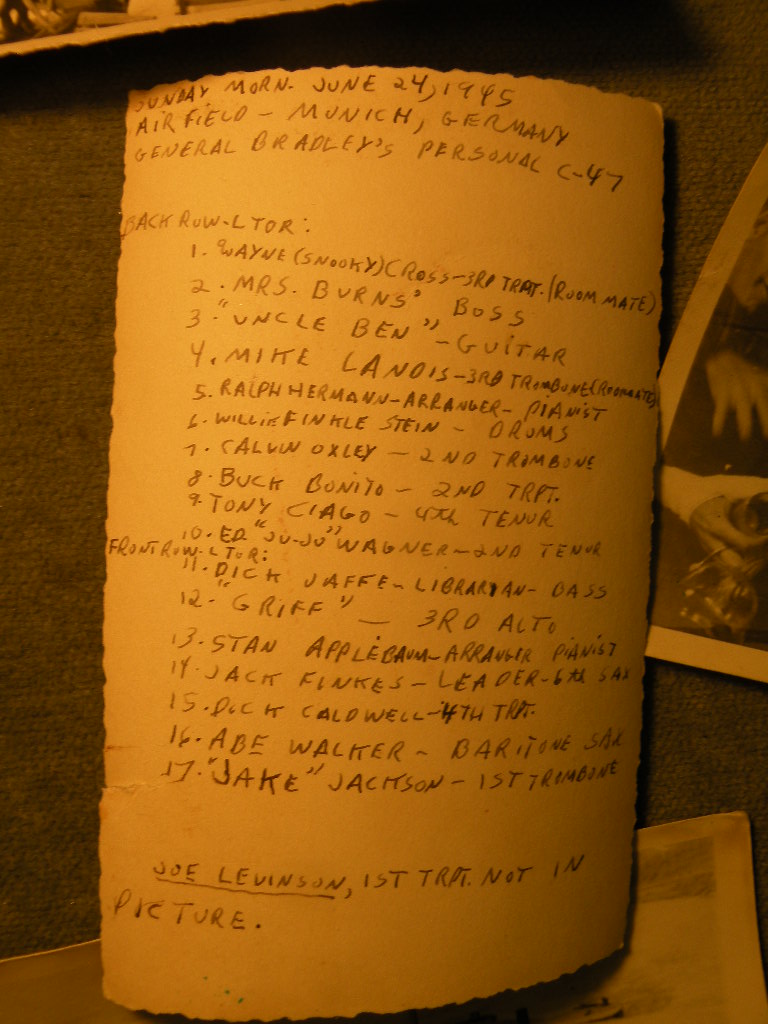 SUNDAY MORN. JUNE 24, 1945
AIRFIELD - MUNICH, GERMANY
GENERAL BRADLEY'S PERSONAL C-47
BACK ROW-L TO R:
1. WAYNE (SNOOKY) CROSS-3RD TRPT. (ROOM MATE)
2. MRS. BURNS' BOSS
3. "UNCLE BEN" - GUITAR
4. MIKE LANDIS-3RD TROMBONE (ROOMATE)
5. RALPH HERMANN-ARRANGER-PIANIST
6. WILLIE FINKLE STEIN - DRUMS
7. CALVIN OXLEY - 2ND TROMBONE
8. BUCK BONITO - 2ND TRPT.
9. TONY CIAGO - 4th TENUR
10. ED "JU-JU" WAGNER-2ND TENUR
FRONT ROW-L TO R:
11. DICK JAFFE- LIBRARIAN- BASS
12. "GRIFF" - 3RD ALTO
13. STAN APPLEBAUM-ARRANGER PIANIST
14. JACK FINKES - LEADER-6th SAX
15. DICK CALDWELL-4TH TRPT.
16. ABE WALKER - BARITONE SAX
17. "JAKE" JACKSON - 1ST TROMBONE
JOE LEVINSON, 1ST TRPT. NOT IN
PICTURE.